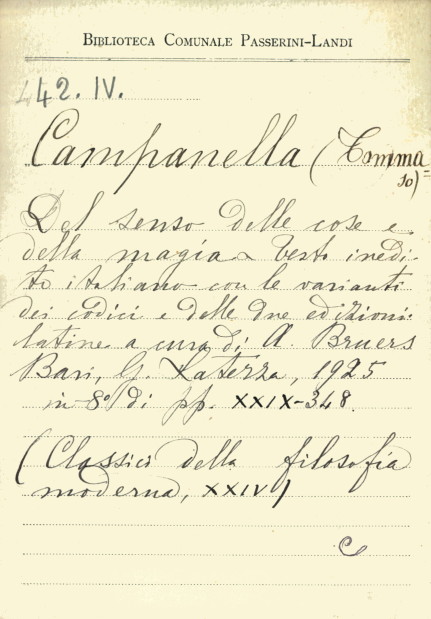 BIBLIOTECA COMUNALE PASSERINI-LANDI
442. IV.
Campanella (Tomma=
so)
Del senso delle cose e
della magia. Testo inedi-
to italiano con le varianti
dei codici e delle due edizioni
latine a cura di A Bruers
Bari, G. Laterza, 1925
in 8º di pp. XXIX-348.
(Classici della filosofia
moderna, XXIV)
C